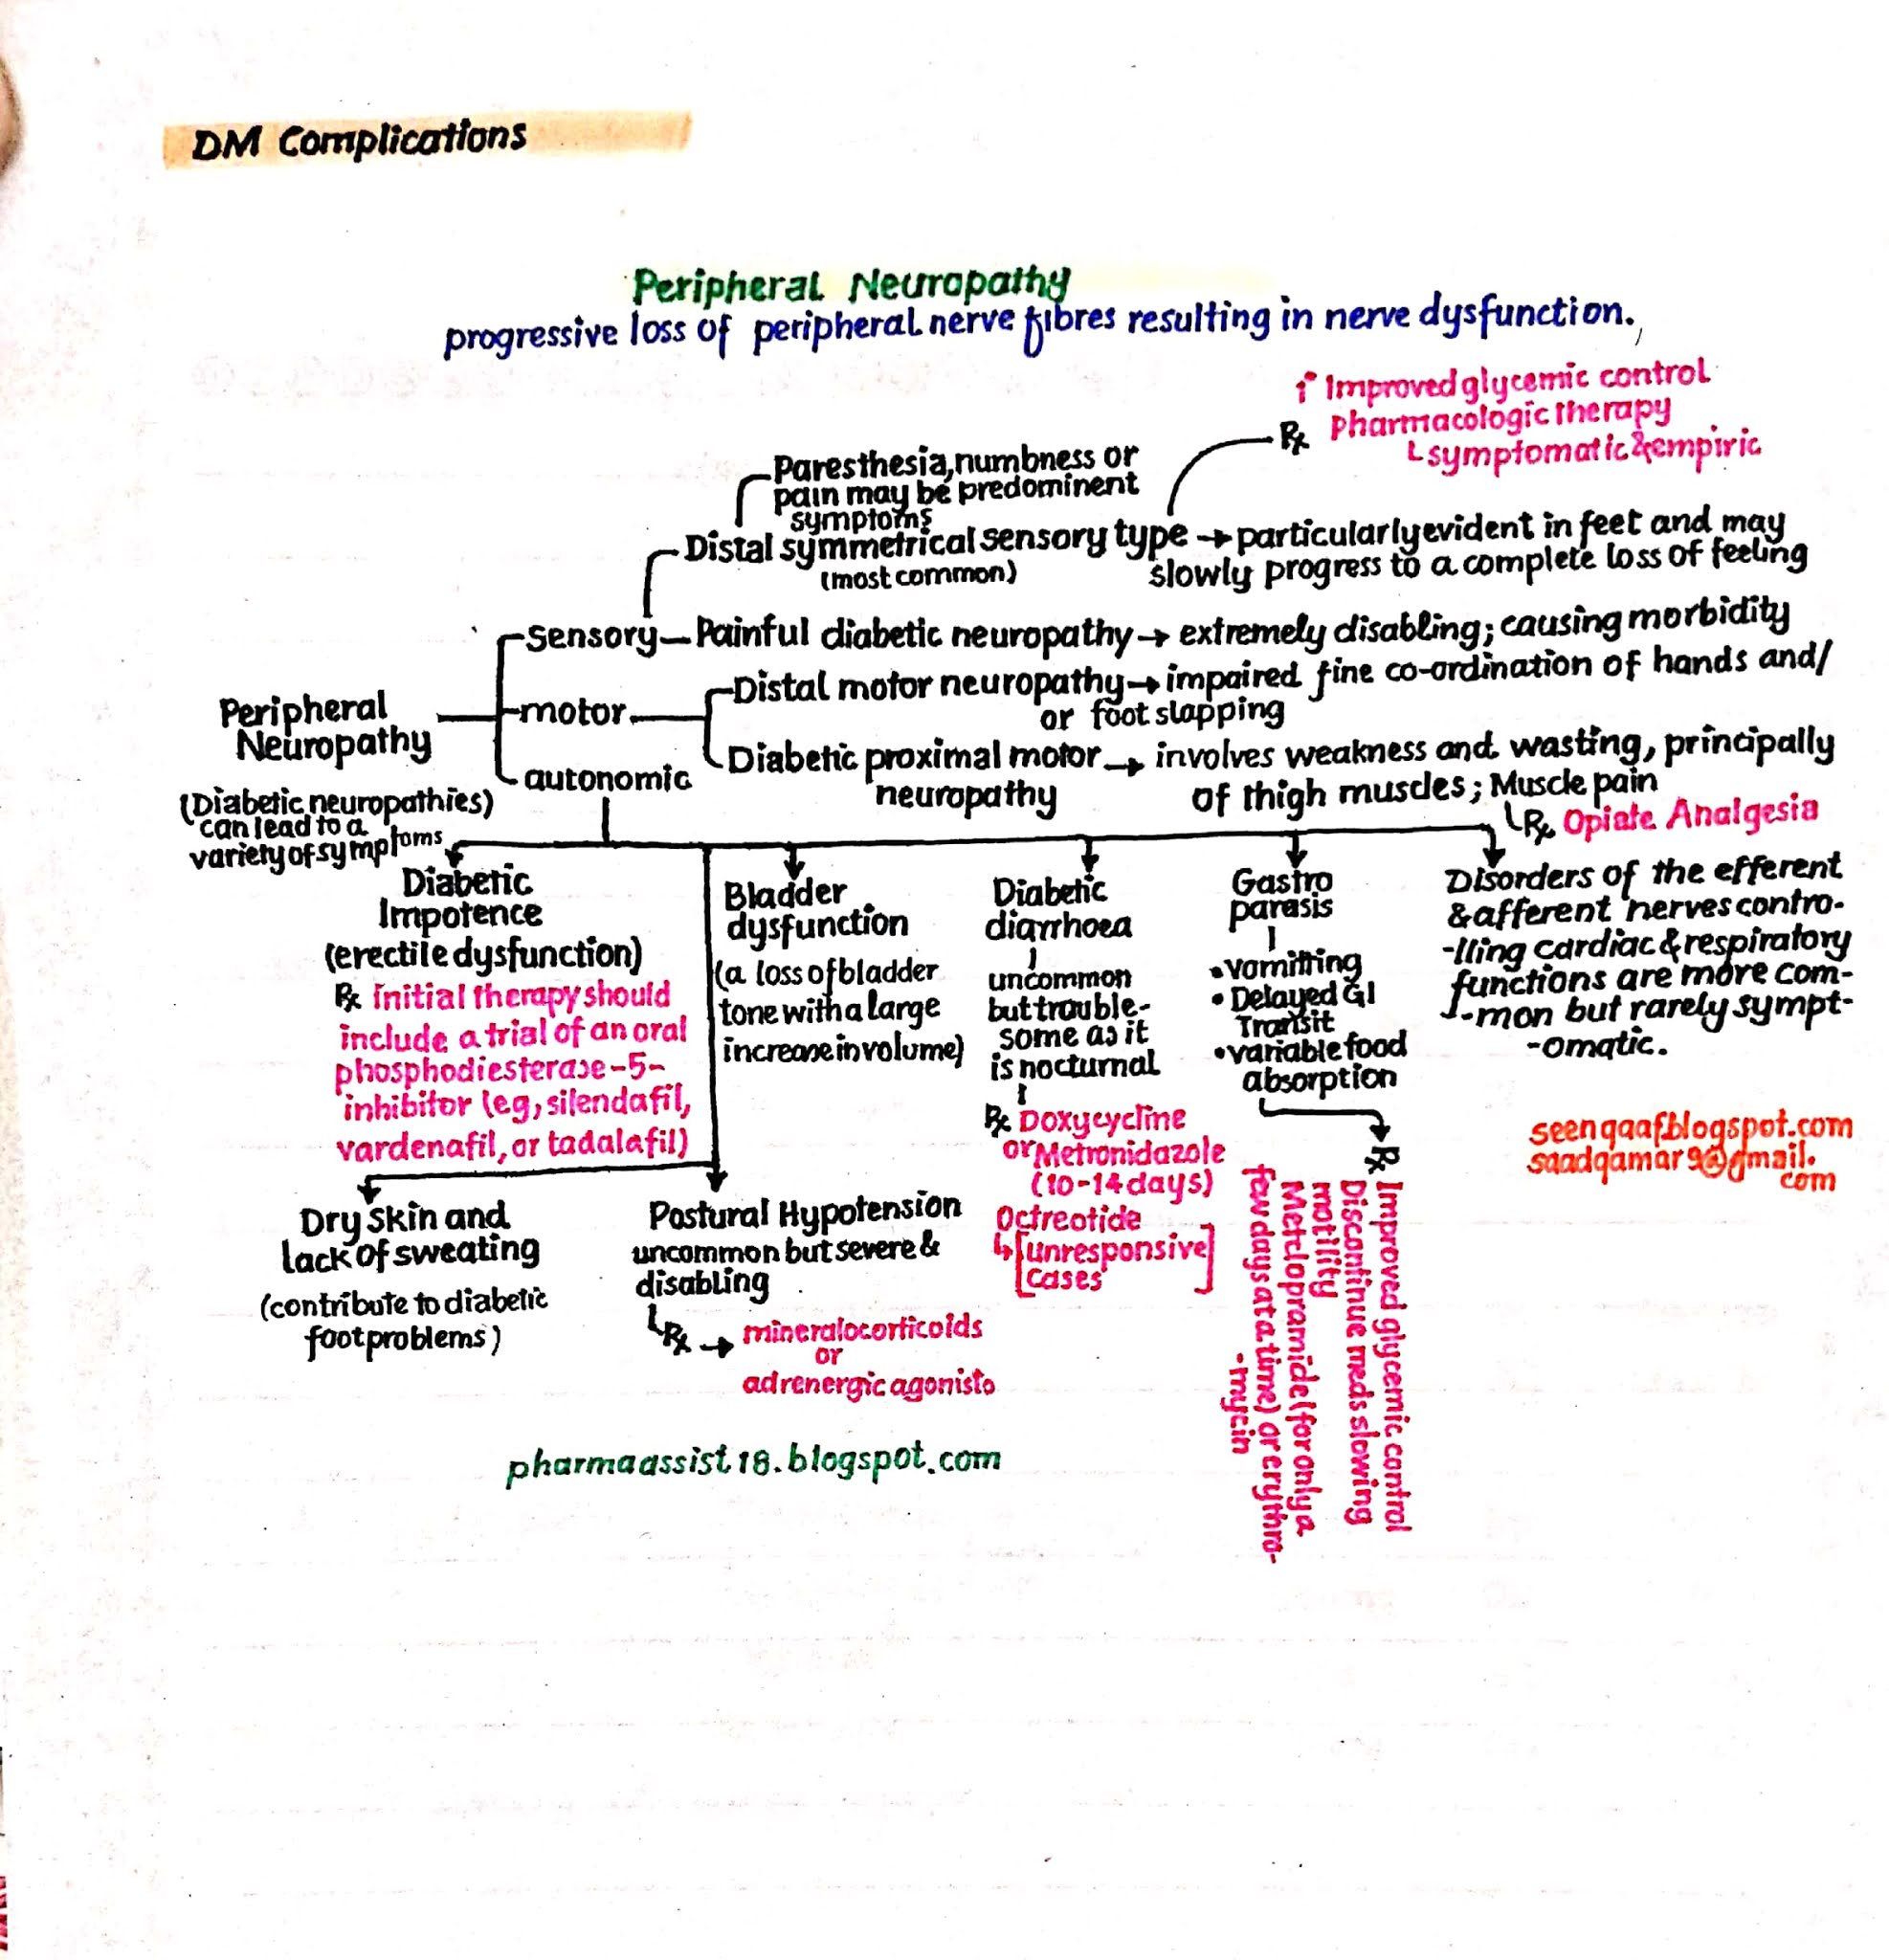 DM Complications
Peripheral Neuropathy
progressive loss of peripheral nerve fibres resulting in nerve dysfunction.
↑ Improved glycemic control
℞ pharmacologic therapy
symptomatic & empiric
Paresthesia, numbness or
pain may be predominent
symptoms
Distal symmetrical sensory type → particularly evident in feet and may
(most common)
slowly progress to a complete loss of feeling
Sensory — Painful diabetic neuropathy → extremely disabling; causing morbidity
Peripheral
Neuropathy
motor
Distal motor neuropathy → impaired fine co-ordination of hands and/
or foot slapping
Diabetic proximal motor → involves weakness and wasting, principally
neuropathy
of thigh muscles; Muscle pain
℞ Opiate Analgesia
autonomic
(Diabetic neuropathies)
can lead to a
variety of symptoms
Diabetic
Impotence
(erectile dysfunction)
℞ Initial therapy should
include a trial of an oral
phosphodiesterase-5-
inhibitor (eg, silendafil,
vardenafil, or tadalafil)
Bladder
dysfunction
(a loss of bladder
tone with a large
increase in volume)
Diabetic
diarrhoea
uncommon
but trouble-
some as it
is nocturnal
℞ Doxycycline
or Metronidazole
(10-14 days)
Octreotide
↳ [unresponsive
cases]
Gastro
parasis
• vomitting
• Delayed GI
Transit
• variable food
absorption
℞ Improved glycemic control
Discontinue meds slowing
motility
Metclopramide (for only a
few days at a time) or erythro-
-mycin
Disorders of the efferent
& afferent nerves contro-
-lling cardiac & respiratory
functions are more com-
-mon but rarely sympt-
-omatic.
seenqaaf.blogspot.com
saadqamar9@gmail.
com
Dry Skin and
lack of sweating
(contribute to diabetic
foot problems)
Postural Hypotension
uncommon but severe &
disabling
℞ → mineralocorticoids
or
adrenergic agonists
pharmaassist18.blogspot.com